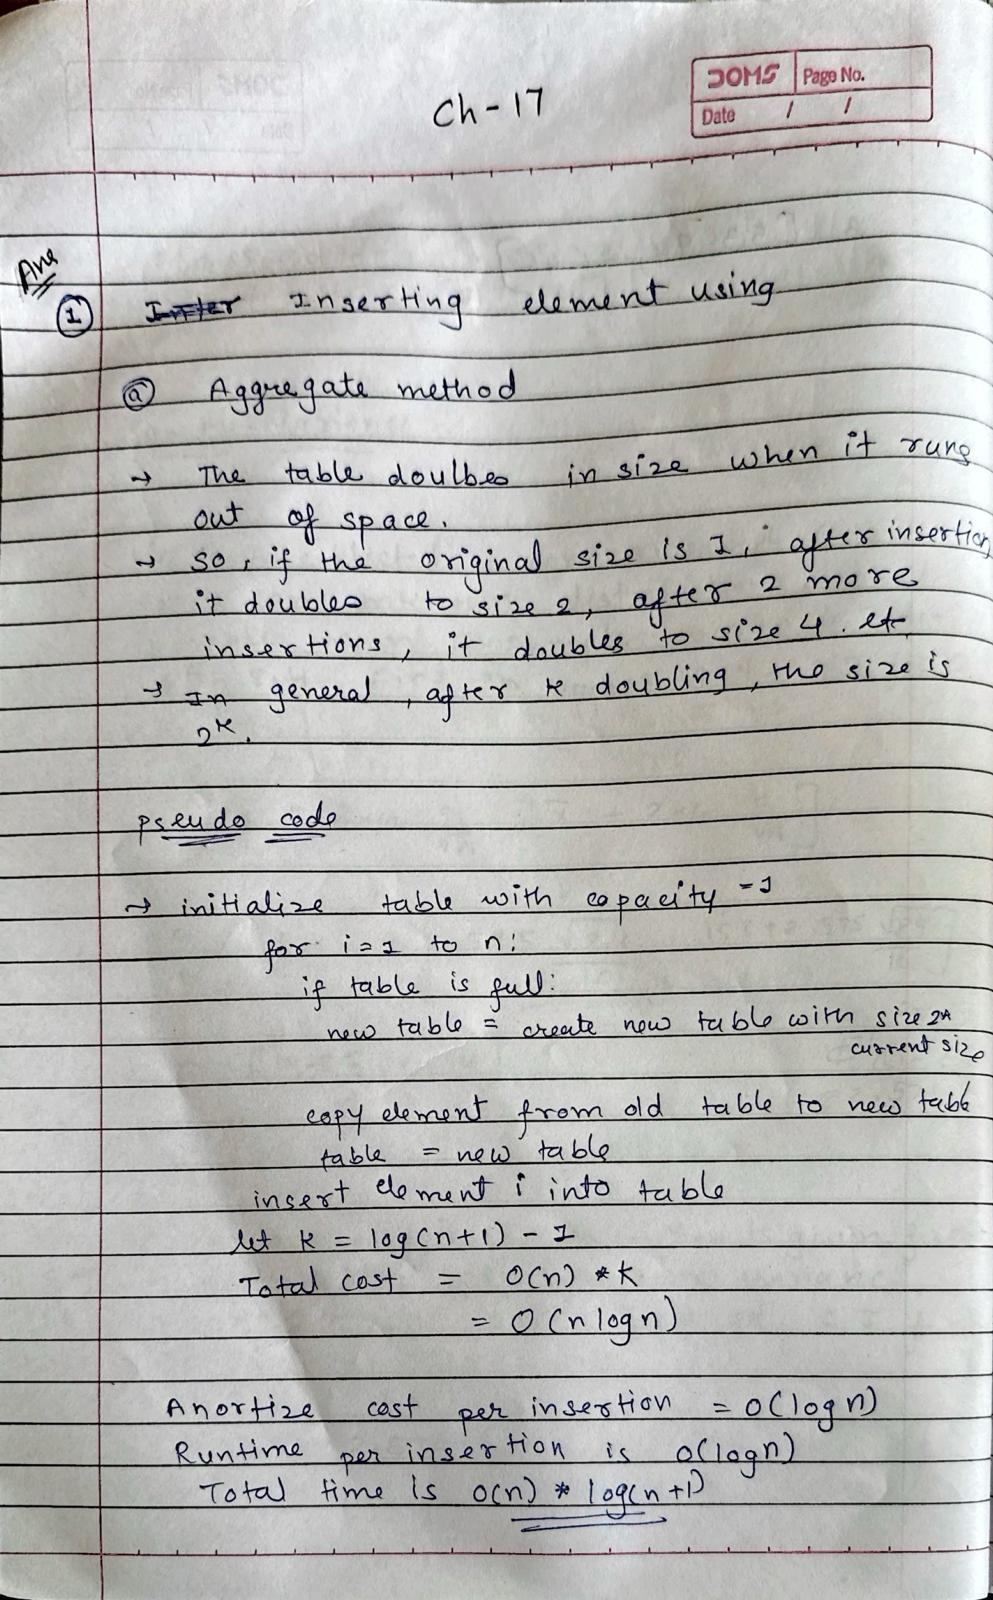 Ch-17
DOMS Page No.
Date / /
Ans
① Inserting element using
ⓐ Aggregate method
→ The table doulbes in size when it runs
out of space.
→ so, if the original size is 1, after insertion
it doubles to size 2, after 2 more
insertions, it doubles to size 4. etc
→ In general, after k doubling, the size is
2^k.
pseudo code
→ initialize table with capacity = 1
for i=1 to n:
if table is full:
new table = create new table with size 2*
current size
copy element from old table to new table
table = new table
insert element i into table
let k = log(n+1) - 1
Total cost = O(n) * k
= O(n log n)
Anortize cost per insertion = O(log n)
Runtime per insertion is O(log n)
Total time is O(n) * log(n+1)